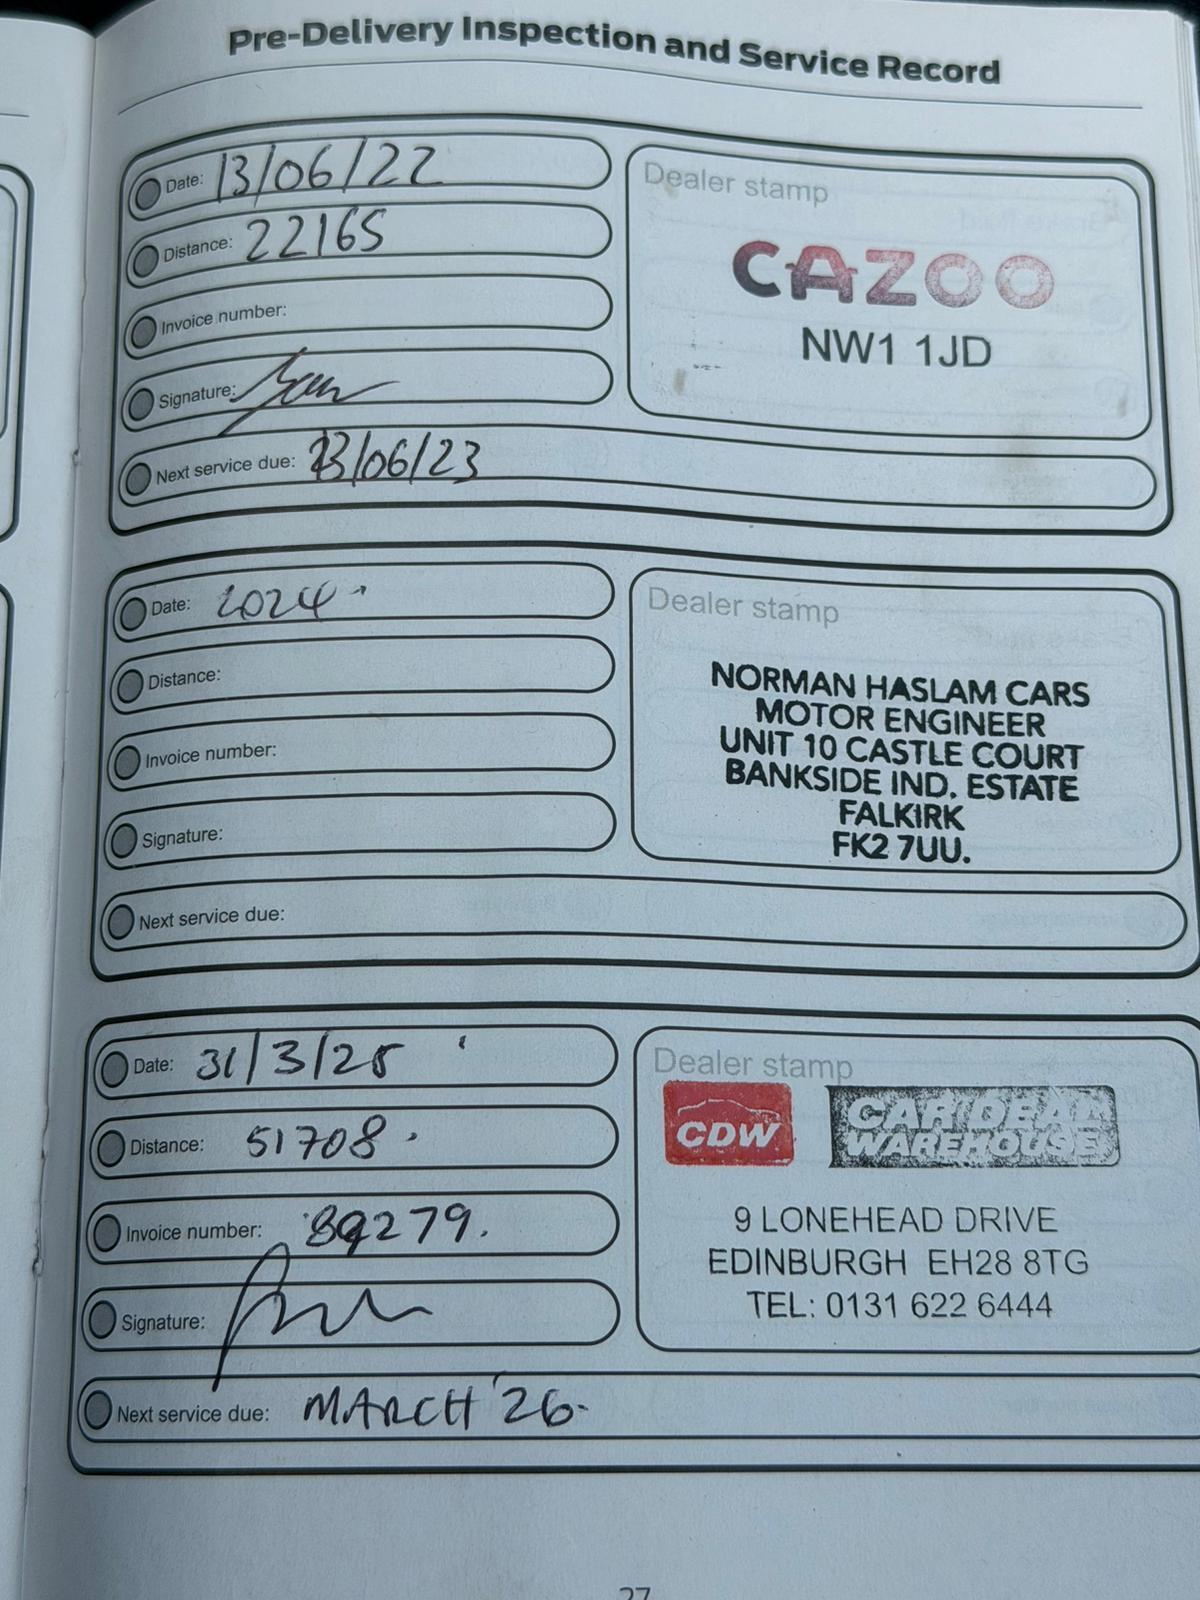 Pre-Delivery Inspection and Service Record
Date: 13/06/22
Distance: 22165
Invoice number:
Signature:
Next service due: 13/06/23
Dealer stamp
CAZOO
NW1 1JD
Date: 2024
Distance:
Invoice number:
Signature:
Next service due:
Dealer stamp
NORMAN HASLAM CARS
MOTOR ENGINEER
UNIT 10 CASTLE COURT
BANKSIDE IND. ESTATE
FALKIRK
FK2 7UU.
Date: 31/3/25
Distance: 51708
Invoice number: 89279.
Signature:
Next service due: MARCH '26.
Dealer stamp
CDW
CAR DEAL
WAREHOUSE
9 LONEHEAD DRIVE
EDINBURGH EH28 8TG
TEL: 0131 622 6444
27